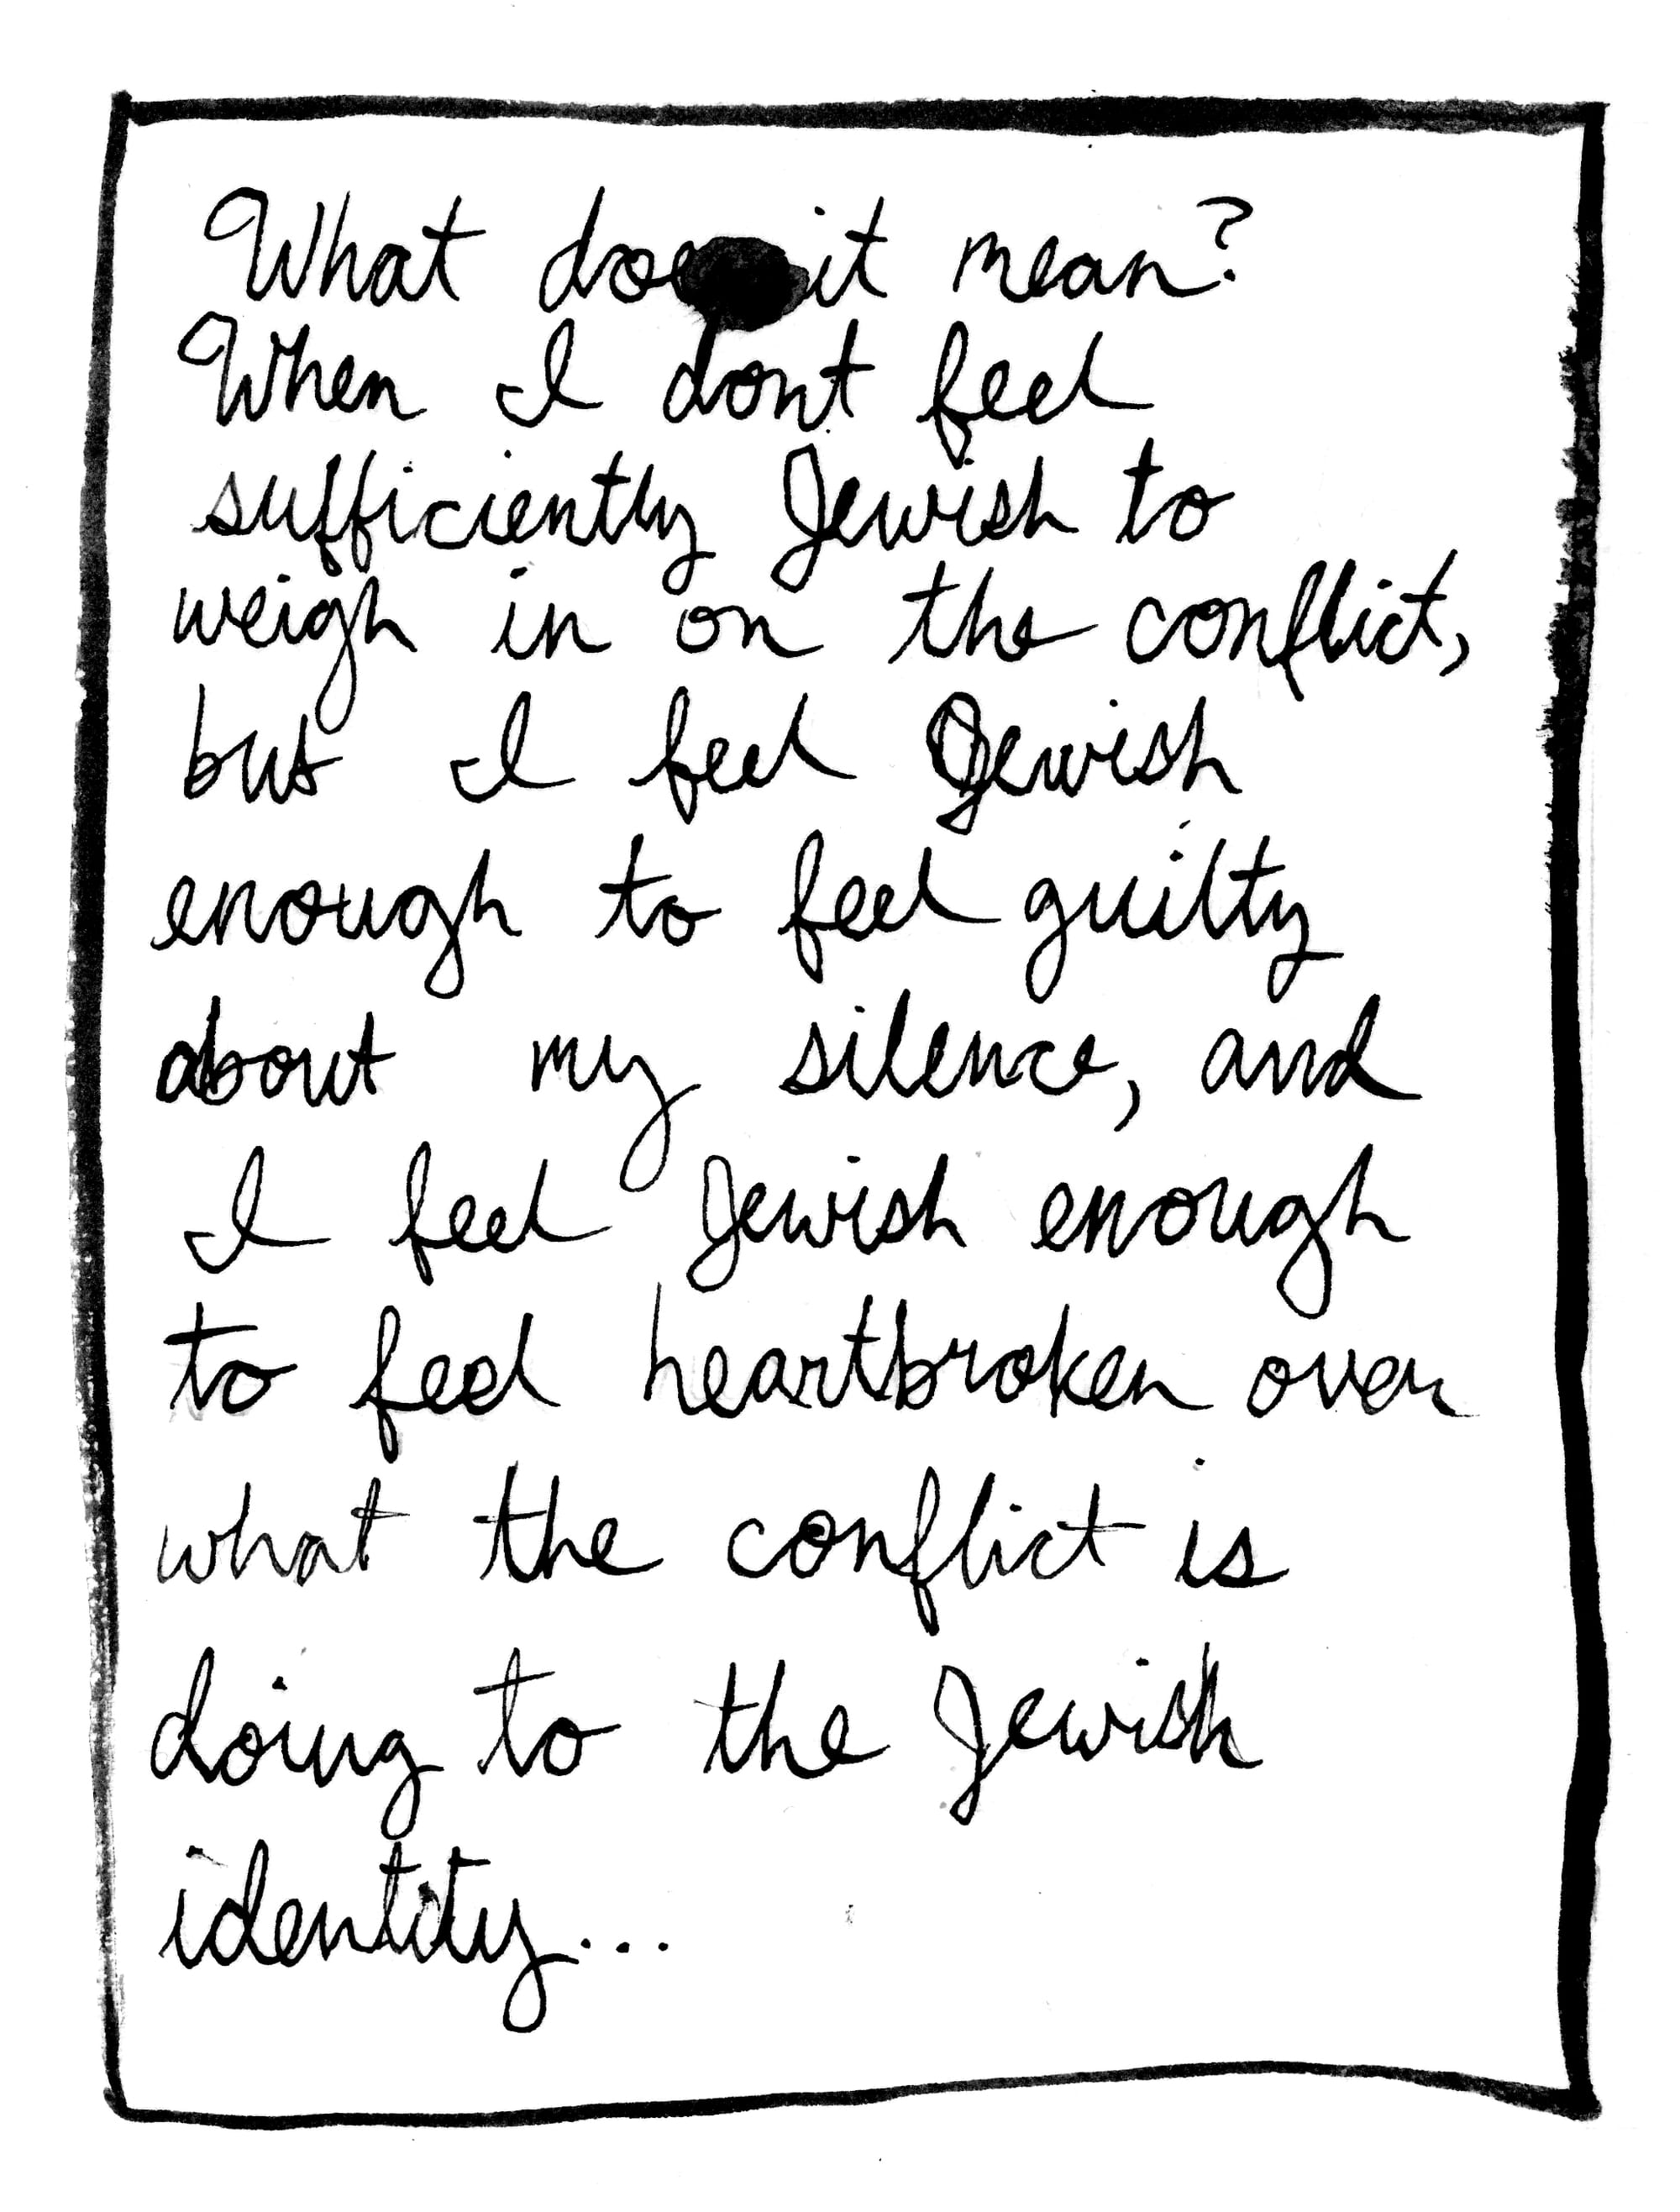 What does it mean?
When I dont feel
sufficiently Jewish to
weigh in on the conflict,
but I feel Jewish
enough to feel guilty
about my silence, and
I feel Jewish enough
to feel heartbroken over
what the conflict is
doing to the Jewish
identity...